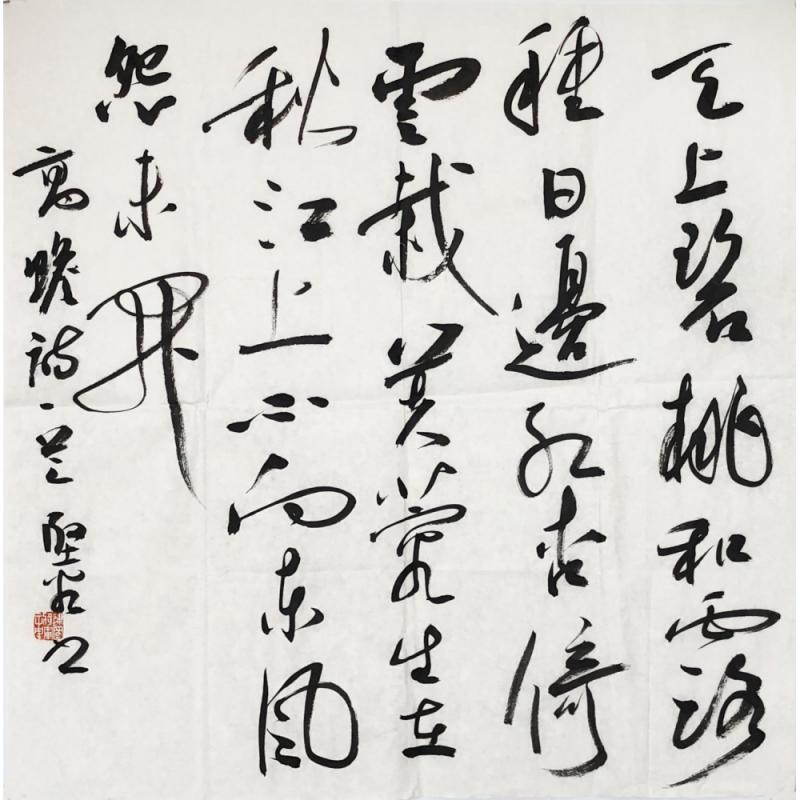 天上碧桃和露
種日邊紅杏倚
雲栽芙蓉生在
秋江上不向東風
怨未開
高蟾詩一首 書